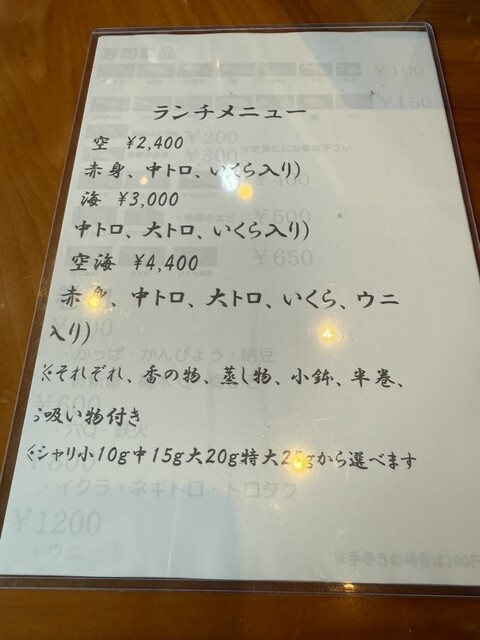 ランチメニュー
空 ¥2,400
赤身、中トロ、いくら入り)
海 ¥3,000
中トロ、大トロ、いくら入り)
空海 ¥4,400
赤身、中トロ、大トロ、いくら、ウニ
入り)
※それぞれ、香の物、蒸し物、小鉢、半巻、
お吸い物付き
※シャリ小10g中15g大20g特大25gから選べます
寿司単品
¥100
¥150
¥200
¥300
¥400
¥500
¥650
・かっぱ・かんぴょう・納豆
¥600
・イクラ・ネギトロ・トロタク
¥1200
・ウニ